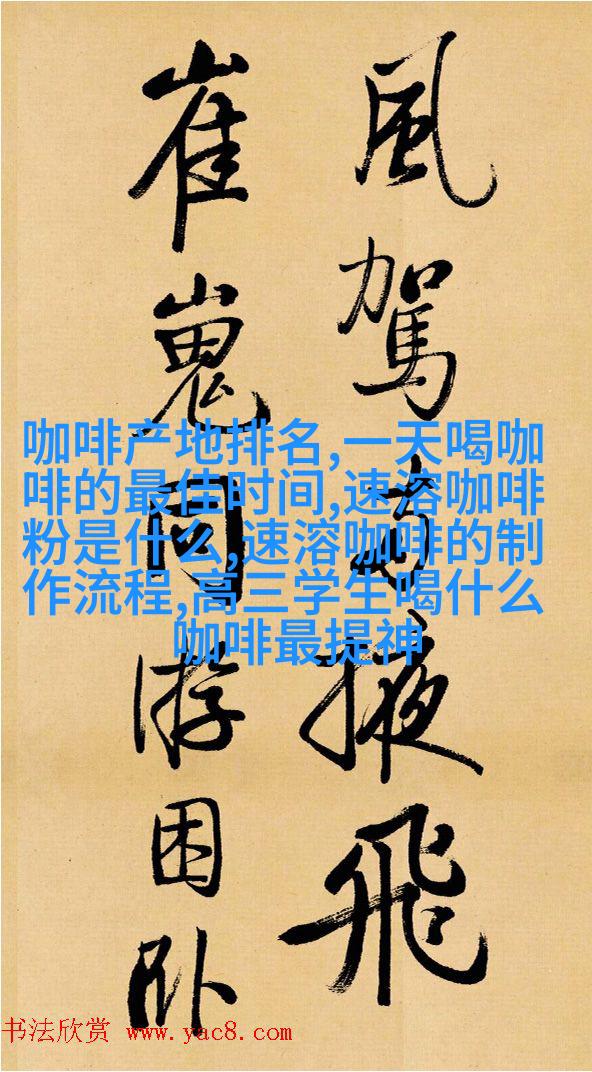 風駕掖飛
崔嵬同游困卧
咖啡产地排名,一天喝咖
啡的最佳时间,速溶咖啡
粉是什么,速溶咖啡的制
作流程,高三学生喝什么
咖啡最提神
书法欣赏 www.yac8.com